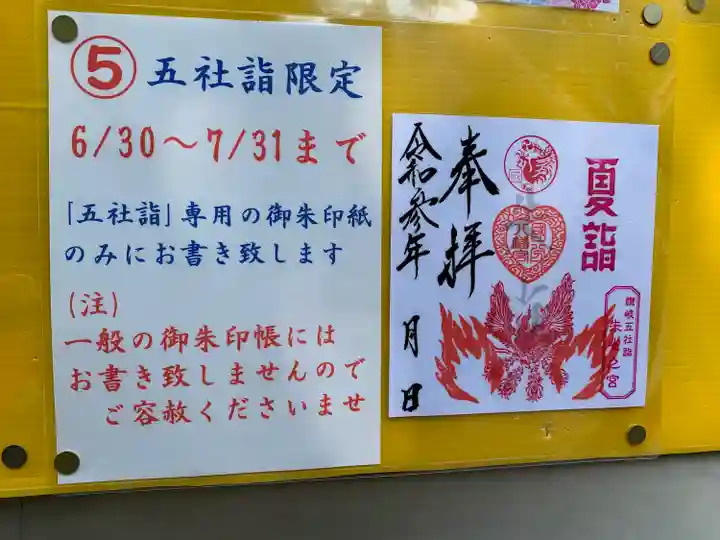 ⑤ 五社詣限定
6/30～7/31まで
「五社詣」専用の御朱印紙
のみにお書き致します
(注)
一般の御朱印帳には
お書き致しませんので
ご容赦くださいませ
夏詣
讃岐五社詣
奉拝
令和参年
月 日